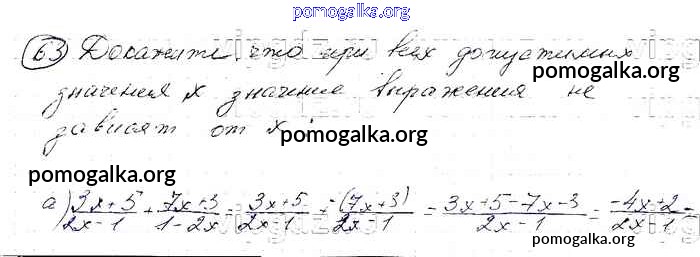 pomogalka.org
63 Докажите, что при всех допустимых
pomogalka.org
значения х значение выражения не
pomogalka.org
зависят от х:
pomogalka.org
а) \frac{3x+5}{2x-1} + \frac{7x+3}{1-2x} = \frac{3x+5}{2x-1} + \frac{-(7x+3)}{2x-1} = \frac{3x+5-7x-3}{2x-1} = \frac{-4x+2}{2x-1} =
pomogalka.org
pomogalka.org